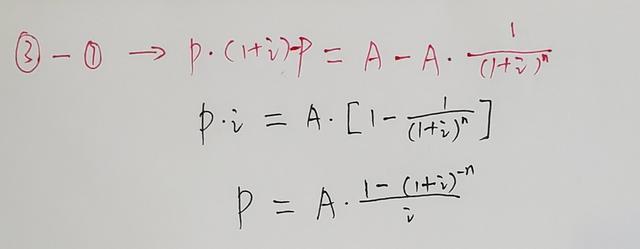 ③ - ① → P·(1+i)-P = A - A · 1/(1+i)^n
P·i = A·[1 - 1/(1+i)^n]
P = A · (1-(1+i)^-n)/i